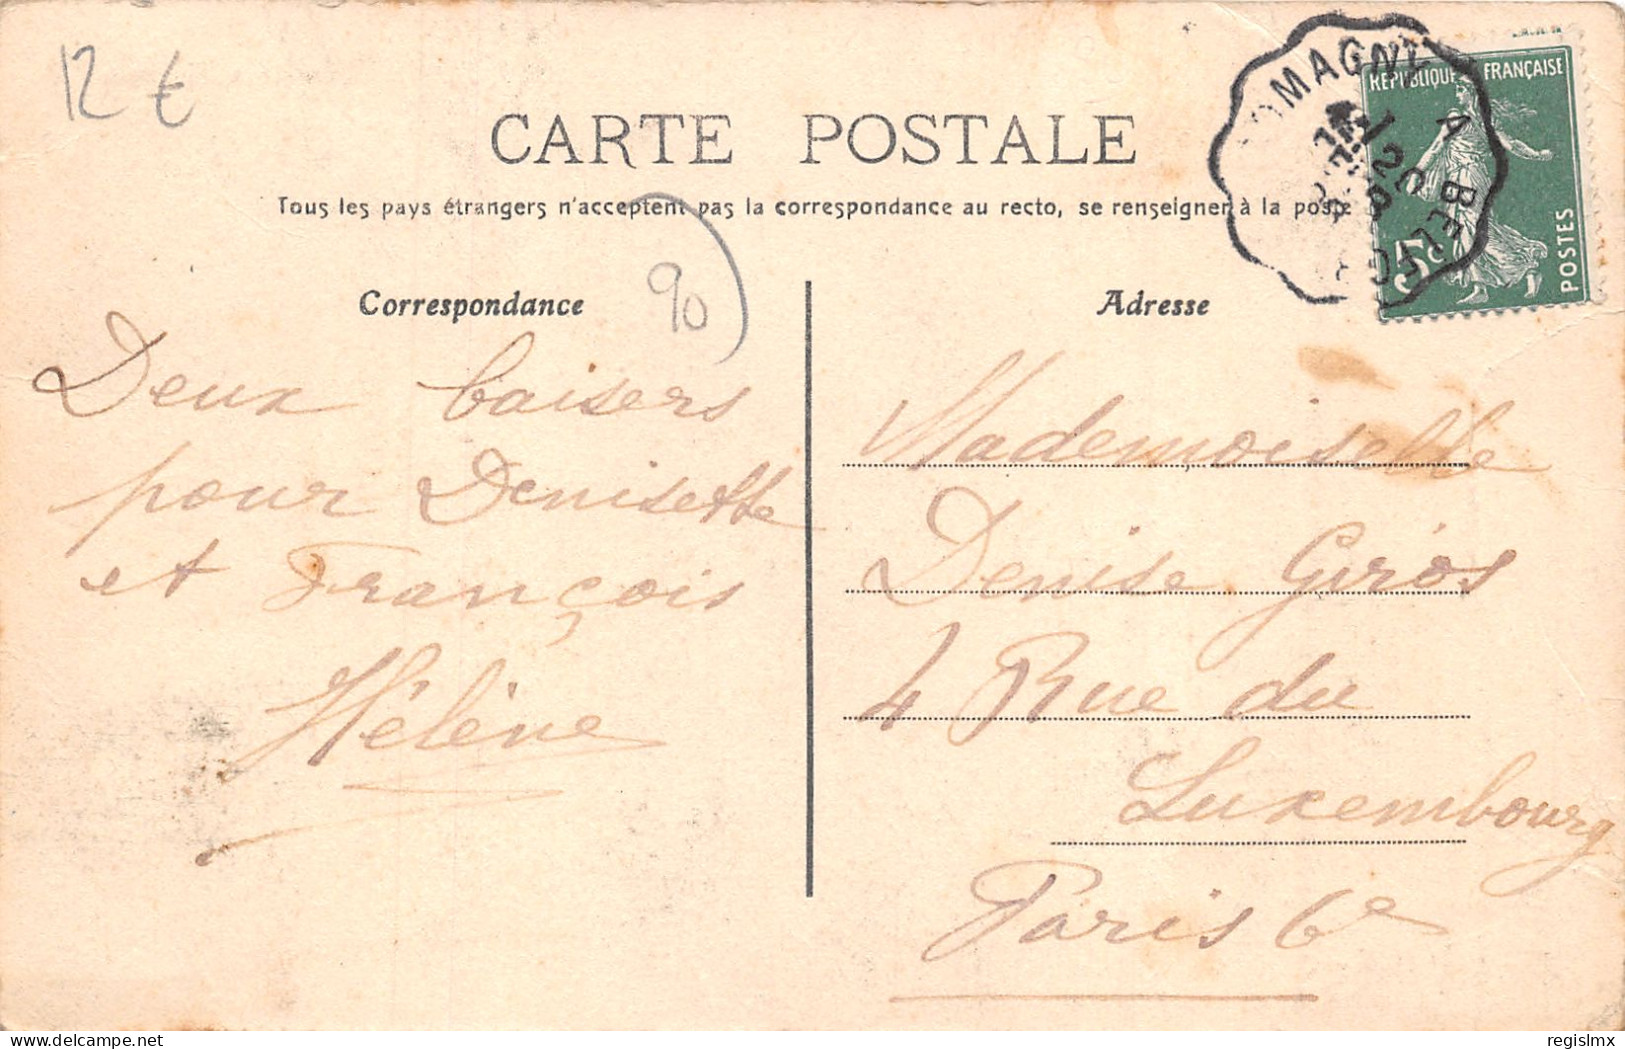 12 €
CARTE POSTALE
Tous les pays étrangers n'acceptent pas la correspondance au recto, se renseigner à la poste
RÉPUBLIQUE FRANÇAISE
5c
POSTES
OMAGNY A BELFO
Correspondance
90
Deux baisers
pour Denisette
et François
Hélène
Adresse
Mademoiselle
Denise Giros
4 Rue du
Luxembourg
Paris 6e
delcampe.net
regislmx